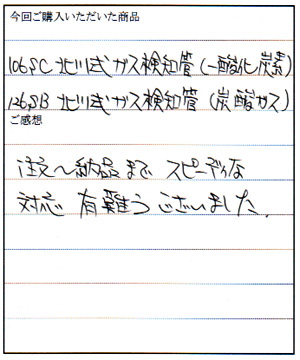 今回ご購入いただいた商品
106SC 北川式ガス検知管(一酸化炭素)
126SB 北川式ガス検知管(炭酸ガス)
ご感想
注文〜納品まで スピーディな
対応 有難うございました.